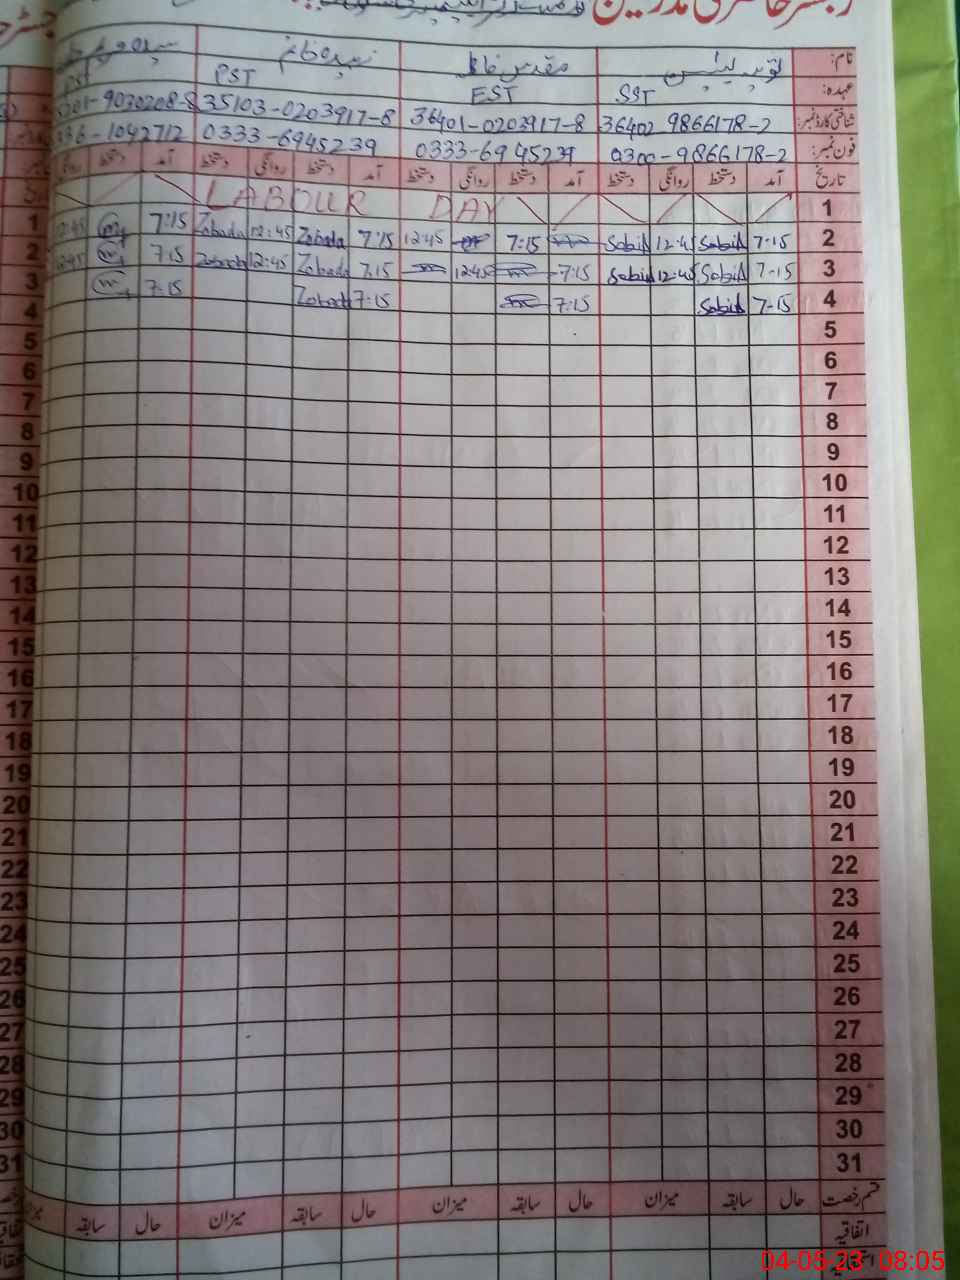 رجسٹر حاضری مدرسین
نام: ثوبیہ مقدس فاطمہ زبیدہ خانم
عہدہ: SST EST PST PST
شناختی کارڈ نمبر: 36402 9866178-2 36401-0203917-8 35103-0203917-8 9030208-8
فون نمبر: 0300-9866178-2 0333-6945239 0333-6945239 336-1042712
تاریخ آمد دستخط روانگی دستخط آمد دستخط روانگی دستخط آمد دستخط روانگی دستخط آمد دستخط روانگی
1 LABOUR DAY
2 7:15 Sabid 12:45 Sabid 7:15 12:45 7:15 Zabada 12:45 Zabada 7:15 12:45
3 7:15 Sabid 12:45 Sabid 7:15 12:45 7:15 Zabada 12:45 Zabada 7:15 12:45
4 7:15 Sabid 7:15 7:15 Zabada 7:15
5
6
7
8
9
10
11
12
13
14
15
16
17
18
19
20
21
22
23
24
25
26
27
28
29
30
31
قسم رخصت حال سابقہ میزان حال سابقہ میزان حال سابقہ میزان حال سابقہ
اتفاقیہ
04-05-23 08:05